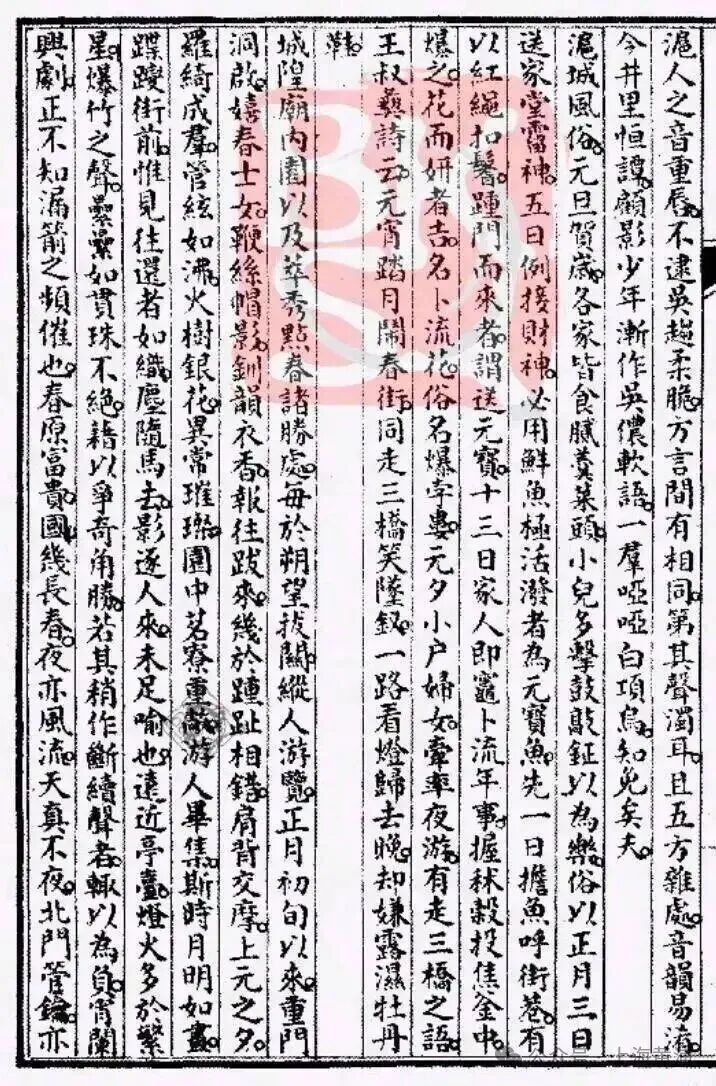 滬人之音重唇。不逮吳趨柔脆。方言間有相同。第其聲濁耳。且五方雜處。音韻易淆。
今井里恒譚。顧影少年。漸作吳儂軟語。一羣啞啞白項烏。知免矣夫。
滬城風俗。元旦賀歲。各家皆食膩羹菜頭。小兒多擊鼓敲鉦以為樂。俗以正月三日
送家堂神。五日例接財神。必用鮮魚極活潑者為元寶魚。先一日擔魚呼街巷。有
以紅繩扣鬐。踵門而來者。謂送元寶。十三日家人即竈卜流年事。握秫穀投焦釜中。
爆之花而妍者吉。名卜流花。俗名爆孛婁。元夕小户婦女。牽率夜游。有走三橋之語。
王叔彝詩云。元宵踏月鬧春街。同走三橋笑墜釵。一路看燈歸去晚。却嫌露濕牡丹
鞋。
城隍廟內園以及萃秀點春諸勝處。每於朔望拔關。縱人游覽。正月初旬以來。重門
洞啟。嬉春士女。鞭絲帽影。釧韻衣香。報往跋來。幾於踵趾相錯。肩背交摩。上元之夕。
羅綺成羣。管絃如沸。火樹銀花。異常璀璨。園中茗寮重敞。游人畢集。斯時月明如晝。
蹀躞街前。惟見往還者如織。塵隨馬去。影逐人來。未足喻也。遠近亭臺。燈火多於繁
星。爆竹之聲。纍纍如貫珠不絕。藉以爭奇角勝。若其稍作斷續聲者。輒以為負。宵闌
興劇。正不知漏箭之頻催也。春原富貴。國幾長春。夜亦風流。天真不夜。北門管鑰。亦
公众号 · 上海黄